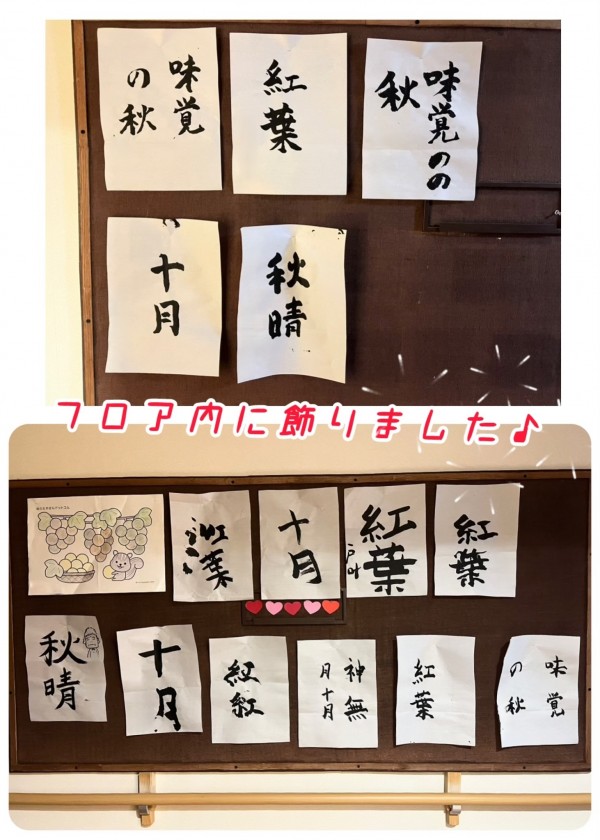 味覚
の秋
紅葉
味覚のの
秋
十月
秋晴
フロア内に飾りました♪
紅葉
十月
紅葉
紅葉
秋晴
十月
紅紅
神無
月十月
紅葉
味覚
の秋